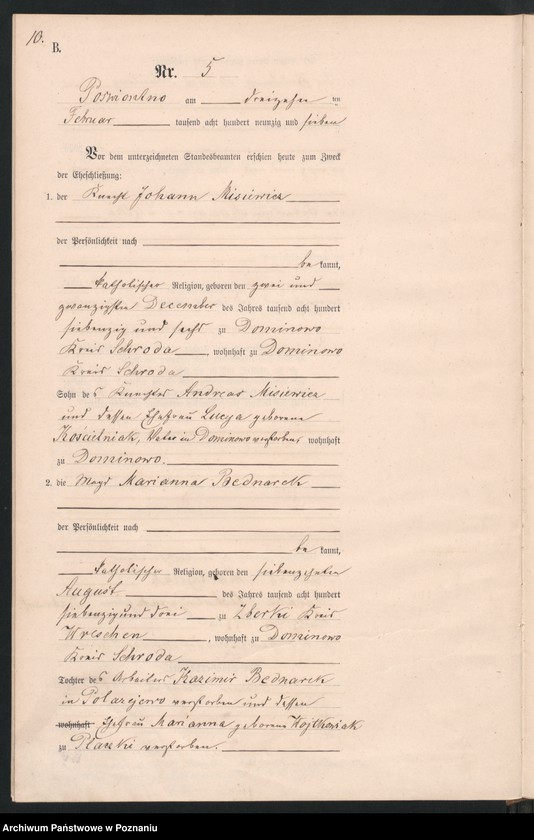 10.
B.
Nr. 5
am dreizehn ten
Februar tausend acht hundert neunzig und sieben
Vor dem unterzeichneten Standesbeamten erschien heute zum Zweck
der Eheschließung:
1. der Knecht Johann Misiewicz
der Persönlichkeit nach
be kannt,
katholischer Religion, geboren den zwei und
zwanzigsten December des Jahres tausend acht hundert
siebenzig und sechs zu Dominowo
Kreis Schroda, wohnhaft zu Dominowo
Kreis Schroda
Sohn des Knechtes Andreas Misiewicz
und dessen Ehefrau Lucya geborene
Koscielniak, Vater in Dominowo verstorben, wohnhaft
zu Dominowo.
2. die Magd Marianna Bednarek
der Persönlichkeit nach
be kannt,
katholischer Religion, geboren den siebenzehnten
August des Jahres tausend acht hundert
siebenzig und drei zu Zberki Kreis
Wreschen, wohnhaft zu Dominowo
Kreis Schroda
Tochter des Arbeiters Kazimir Bednarek
in Polazejewo verstorben und dessen
wohnhaft Ehefrau Marianna geborene Wojtkowiak
zu verstorben.
Archiwum Państwowe w Poznaniu